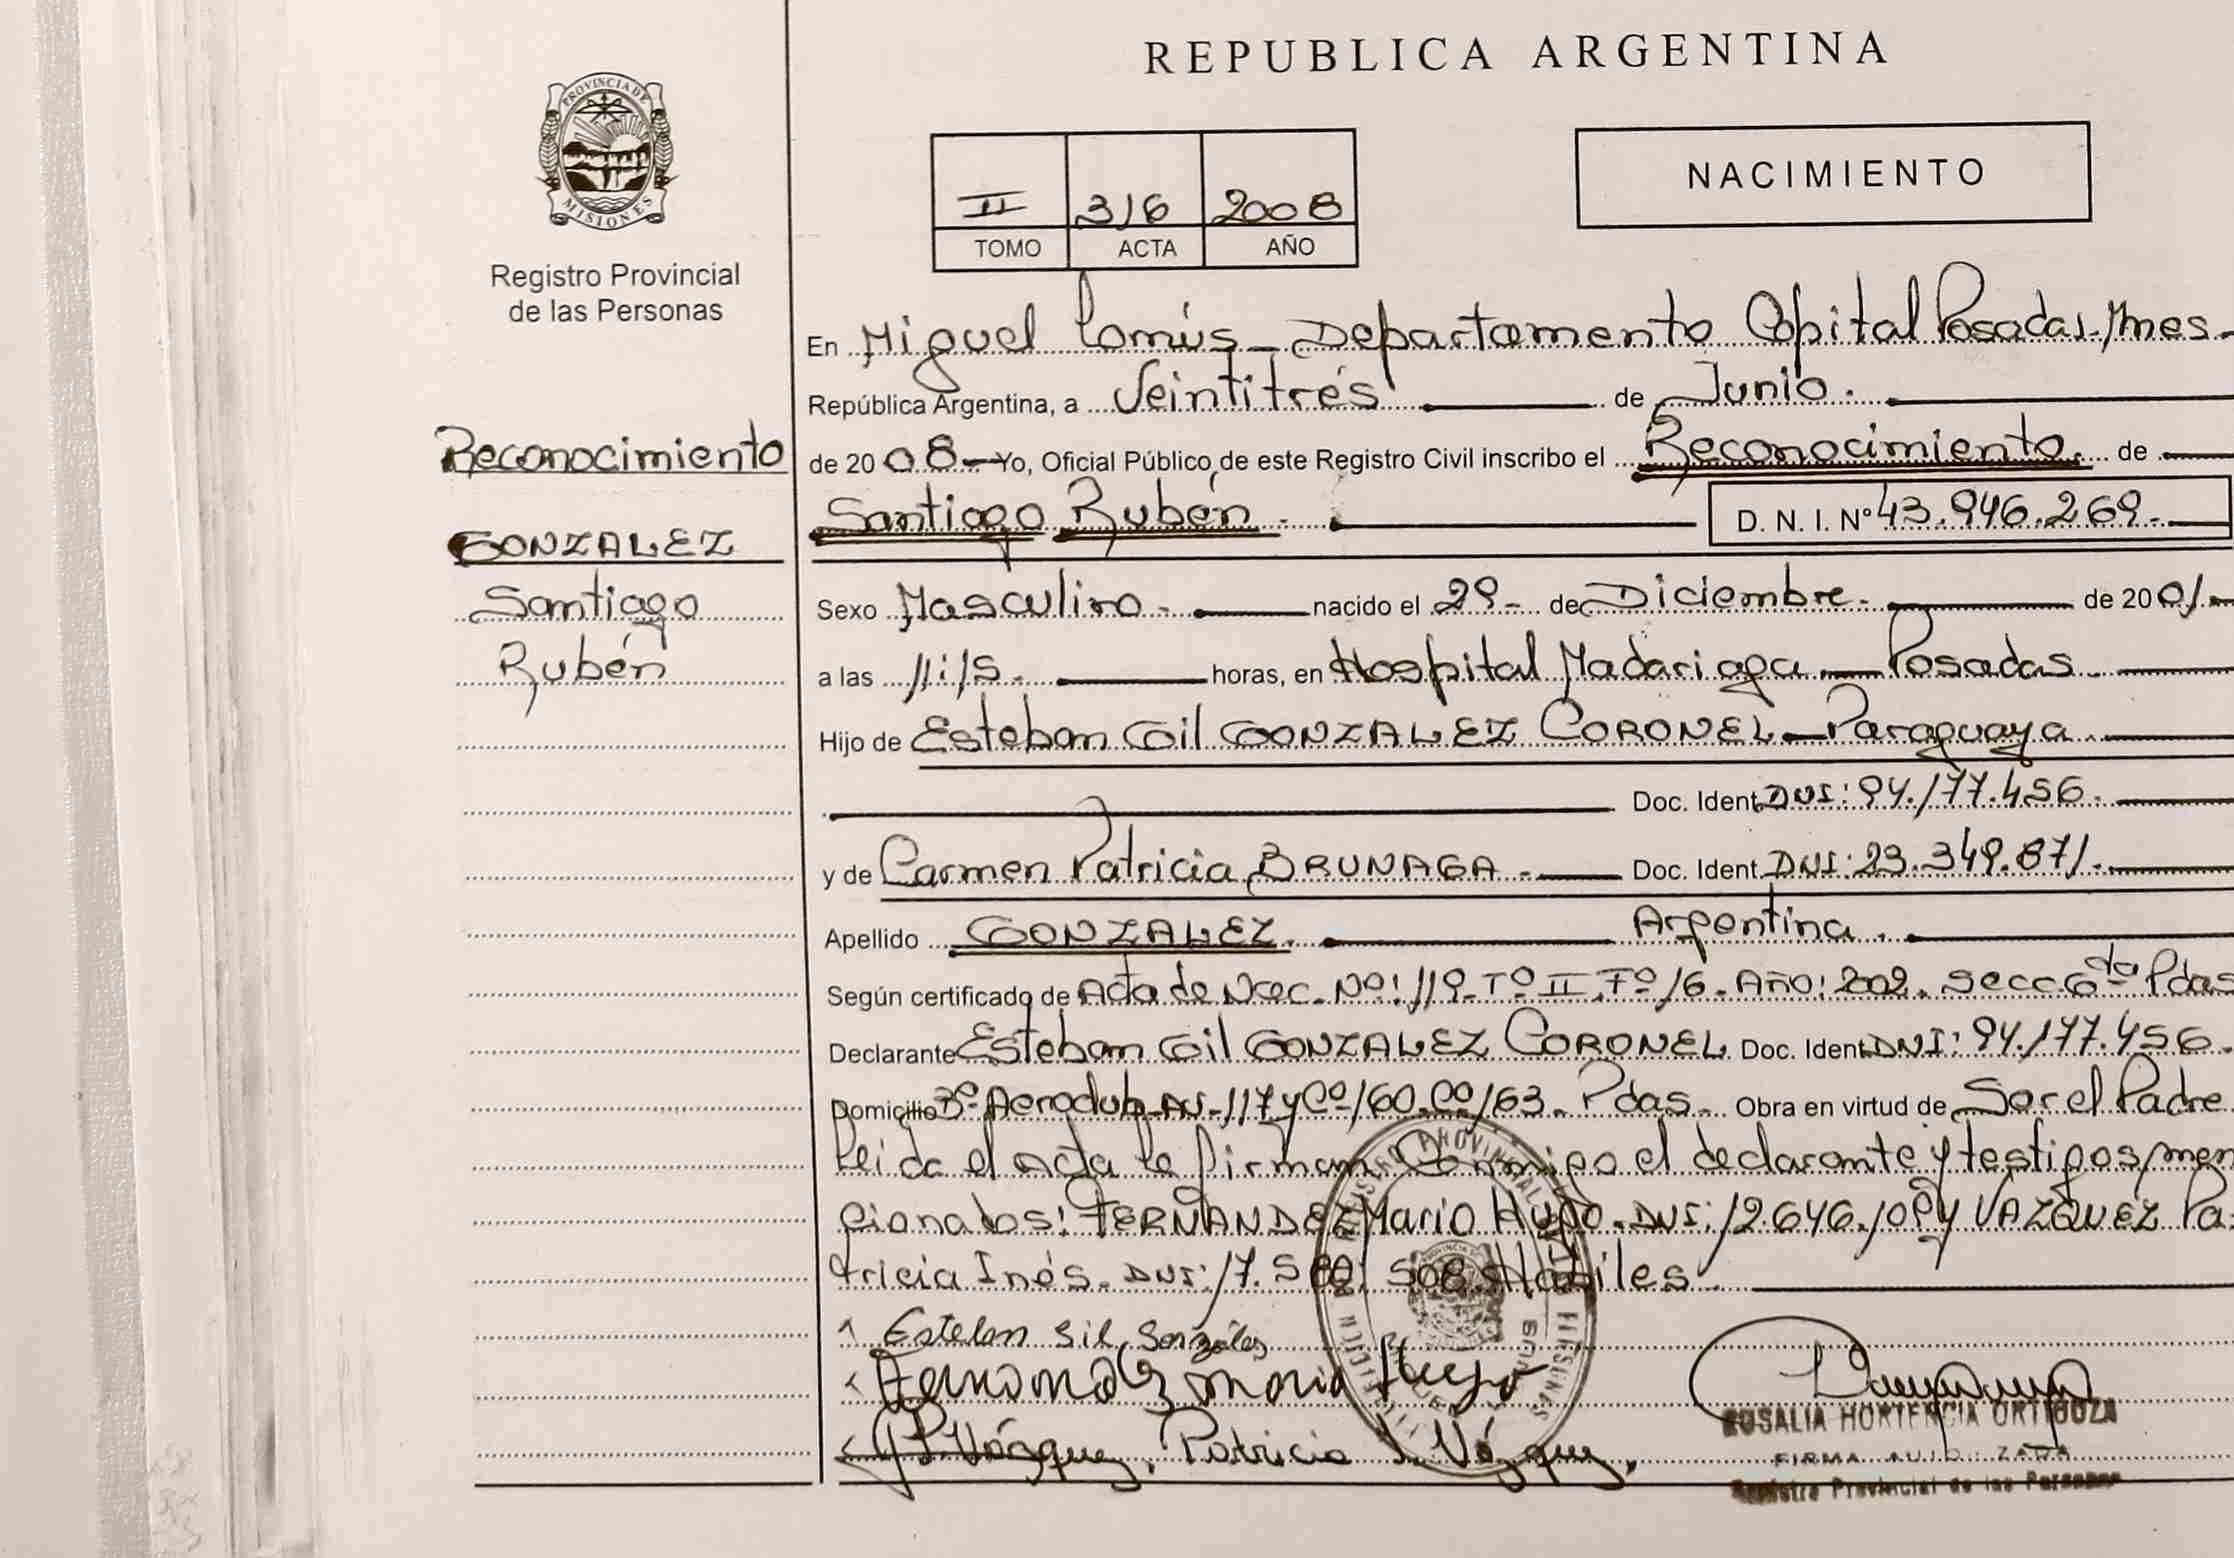 REPUBLICA ARGENTINA
PROVINCIA DE
MISIONES
Registro Provincial
de las Personas
II 316 2008
TOMO ACTA AÑO
NACIMIENTO
Reconocimiento
GONZALEZ
Santiago
Rubén
En Miguel Lanús - Departamento Capital Posadas - Mnes -
República Argentina, a Veintitrés de Junio.
de 2008 - Yo, Oficial Público de este Registro Civil inscribo el Reconocimiento. de
Santiago Rubén - D. N. I. Nº 43.946.269.-
Sexo Masculino - nacido el 29 - de Diciembre - de 2001 -
a las 11:15 - horas, en Hospital Madariaga - Posadas
Hijo de Esteban Gil GONZALEZ CORONEL - Paraguaya
Doc. Ident. DNI: 94.177.456.
y de Carmen Patricia BRUNAGA - Doc. Ident. DNI: 23.349.871.-
Apellido GONZALEZ. Argentina.
Según certificado de Acta de Nac. Nº: 119 - Tº II Fº 16 - Año: 2002. Secc. 6ta Pdas
Declarante Esteban Gil GONZALEZ CORONEL Doc. Ident. DNI: 94.177.456.
Domicilio Bº Aeroclub - Av - 117 y Cº 160. Cº 163. Pdas. Obra en virtud de Ser el Padre
Leida el Acta la firman Conmigo el declarante y testigos men
cionados: FERNANDEZ Mario Hugo. DNI: 12.646.109 y VAZQUEZ Pa-
tricia Inés. DNI: 17.580.508. Hábiles.
Esteban Gil González
Fernandez Mario Hugo
Vázquez, Patricia I. Vázquez
ROSALIA HORTENCIA ORTIGOZA
FIRMA AUTORIZADA
Registro Provincial de las Personas